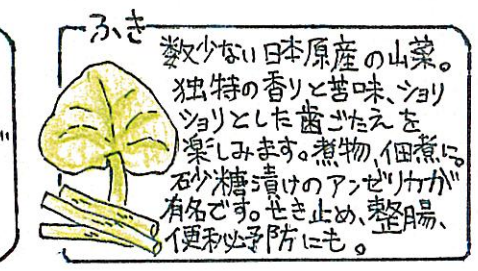 ふき
数少ない日本原産の山菜。
独特の香りと苦味、ショリ
ショリとした歯ごたえを
楽しみます。煮物、佃煮に。
砂糖漬けのアンゼリカが
有名です。せき止め、整腸、
便秘予防にも。